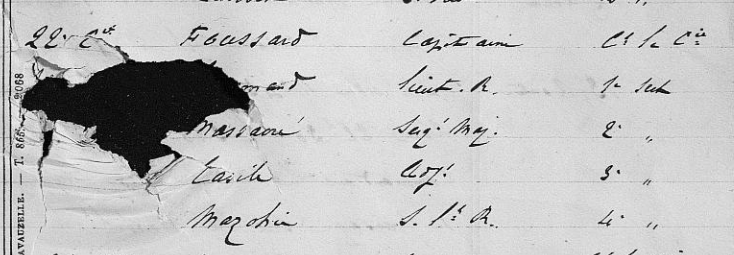 22e Cie Foussard Capitaine Ct la Cie
mand Lieut. R. 1e Sect
Massacré Sergt Maj. 2e "
Tasile Adjt 3e "
S. Lt R. 4e "
AVAUZELLE. — T. 866. — 2068